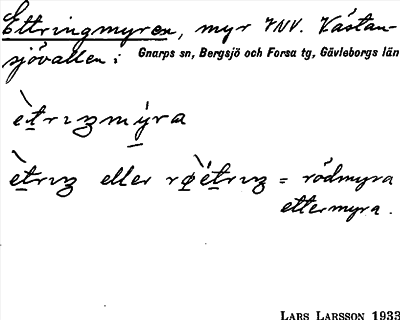 Ettringmyren, myr VNV. Västan-
sjövallen i Gnarps sn, Bergsjö och Forsa tg, Gävleborgs län
ètrıŋmýra
ètrıŋ eller rø̀étrıŋ = rödmyra
ettermyra.
LARS LARSSON 1933